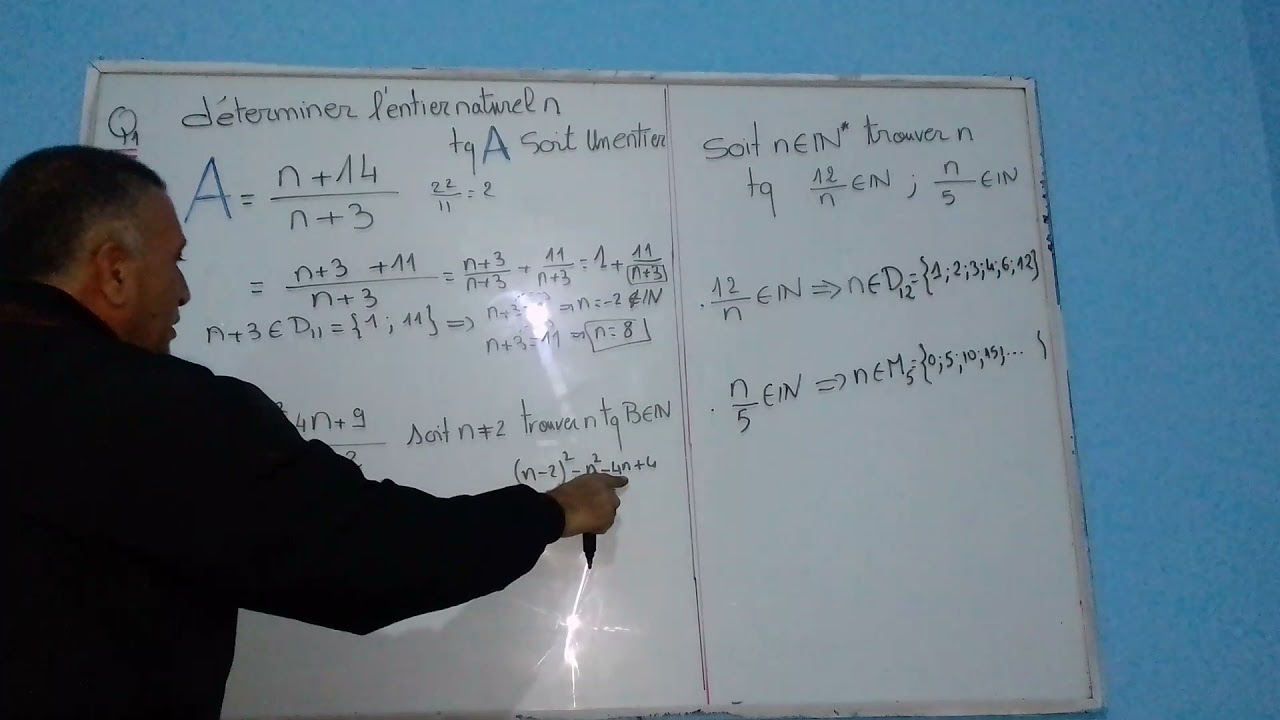 Q1 déterminer l'entier naturel n
tq A soit un entier
A = (n+14)/(n+3) 22/11 = 2
= (n+3 +11)/(n+3) = (n+3)/(n+3) + 11/(n+3) = 1 + 11/(n+3)
n+3 ∈ D₁₁ = {1 ; 11} ⟹ ⇒ n = -2 ∉ IN
n+3 = 11 ⇒ n = 8
4n+9 soit n ≠ 2 trouver n tq B ∈ IN
(n-2)² = n² - 4n + 4
Soit n ∈ IN* trouver n
tq 12/n ∈ IN ; n/5 ∈ IN
. 12/n ∈ IN ⟹ n ∈ D₁₂ = {1 ; 2 ; 3 ; 4 ; 6 ; 12}
. n/5 ∈ IN ⟹ n ∈ M₅ = {0 ; 5 ; 10 ; 15 ; ... }